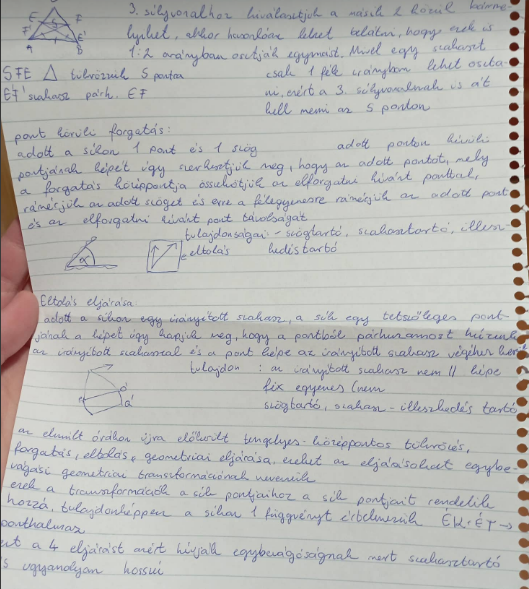 3. súlyvonalhoz kiválasztjuk a másik 2 közül bárme-
lyiket, akkor hasonlóan lehet belátni, hogy ezek is
1:2 arányban osztják egymást. Mivel egy szakaszt
SFE △ tükrözzük S pontra csak 1 féle arányban lehet oszta-
EF szakasz párh. EF ni, ezért a 3. súlyvonalnak is át
kell menni az S ponton
pont körüli forgatás:
adott a síkon 1 pont és 1 szög adott ponton kívüli
pontjának képét úgy szerkesztjük meg, hogy az adott pontot, mely
a forgatás középpontja összekötjük az elforgatni kívánt ponttal,
rámérjük az adott szöget és erre a félegyenesre rámérjük az adott pont
és az elforgatni kívánt pont távolságát
tulajdonságai - szögtartó, szakasztartó, illesz-
α eltolás kedéstartó
Eltolás eljárása
adott a síkon egy irányított szakasz, a sík egy tetszőleges pont-
jának a képét úgy kapjuk meg, hogy a pontból párhuzamost húzunk
az irányított szakasszal és a pont képe az irányított szakasz végéhez
tulajdon : az irányított szakasz nem || képe
fix egyenes (nem
szögtartó, szakasz - illeszkedés tartó
az elmúlt órákon újra előkerült tengelyes-középpontos tükrözés,
forgatás, eltolás, geometriai eljárása ezeket az eljárásokat egybe-
vágósági geometriai transzformációnak nevezzük
ezek a transzformációk a sík pontjaihoz a sík pontjait rendelik
hozzá, tulajdonképpen a síkon 1 függvényt értelmezük ÉK: ÉT →
ponthalmaz
a 4 eljárást azért hívják egybevágóságnak mert szakasztartó
s ugyanolyan hosszú